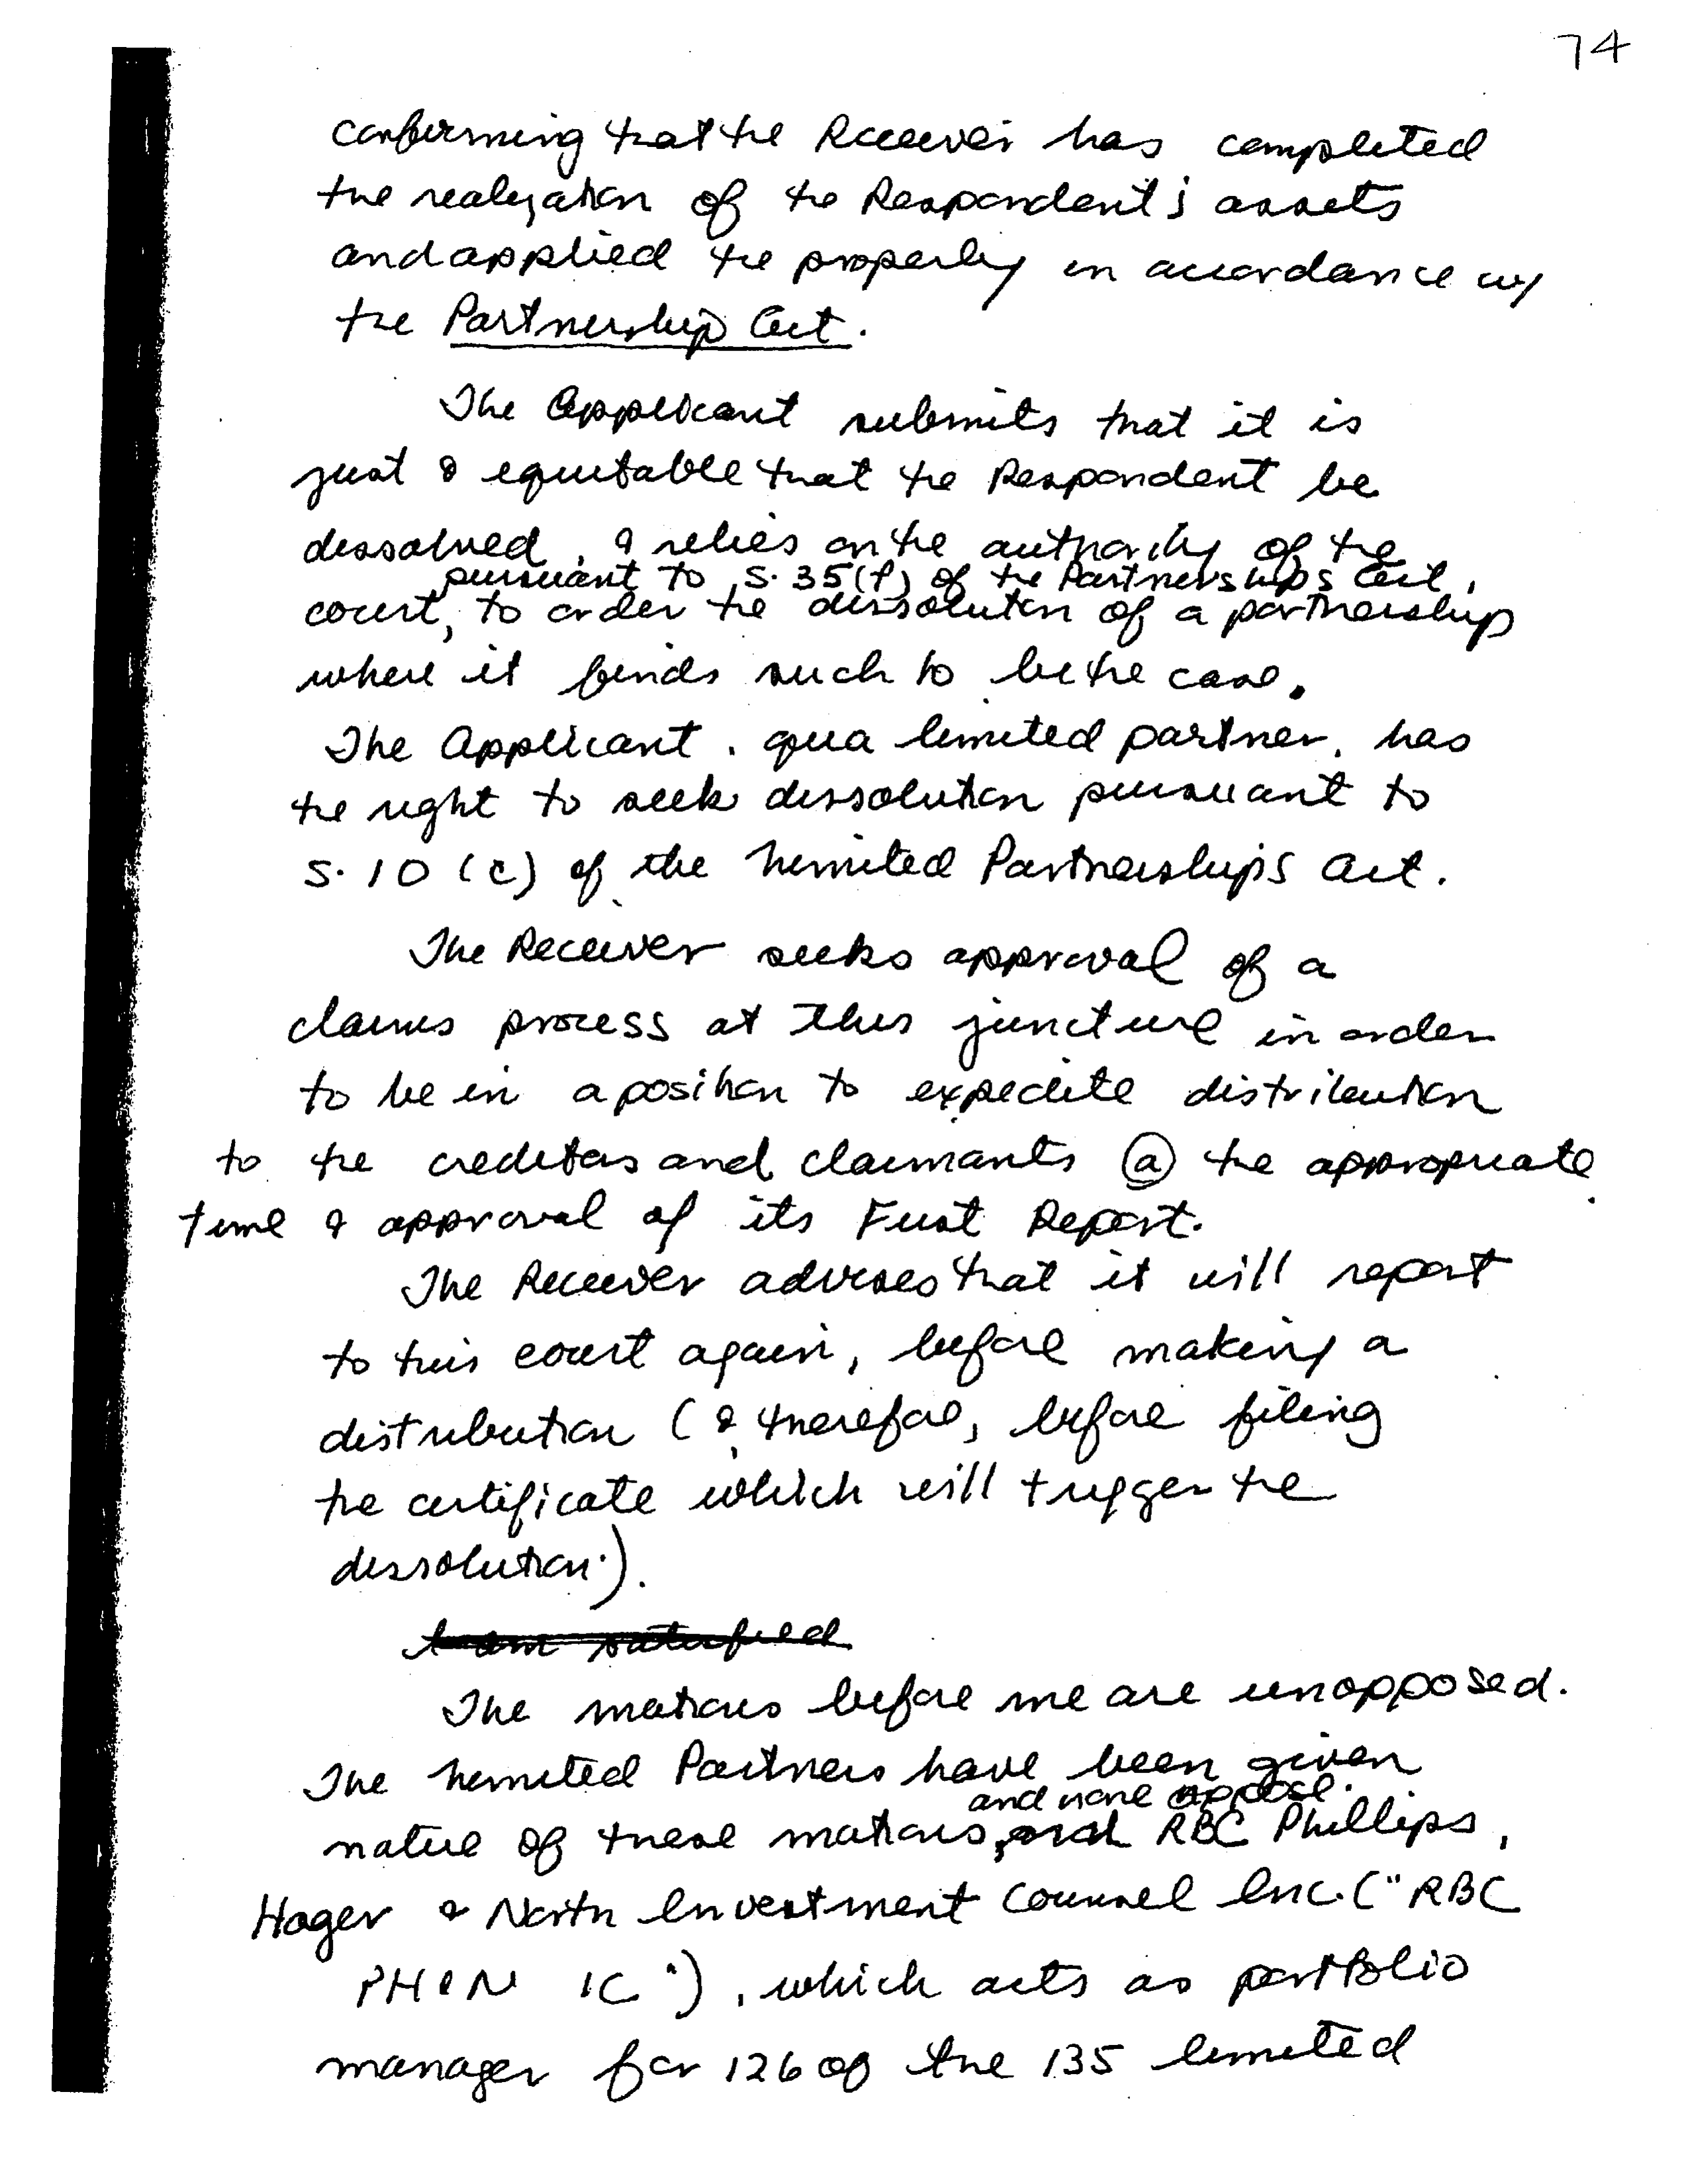 74
confirming that the Receiver has completed
the realization of the Respondent's assets
and applied the property in accordance w/
the Partnership Act.
The Applicant submits that it is
just & equitable that the Respondent be
dissolved, & relies on the authority of the
pursuant to s. 35(f) of the Partnerships Act,
court, to order the dissolution of a partnership
where it finds such to be the case.
The Applicant, qua limited partner, has
the right to seek dissolution pursuant to
s. 10 (c) of the Limited Partnerships Act.
The Receiver seeks approval of a
claims process at this juncture in order
to be in a position to expedite distribution
to the creditors and claimants @ the appropriate
time & approval of its First Report.
The Receiver advises that it will report
to this court again, before making a
distribution (& therefore, before filing
the certificate which will trigger the
dissolution.).
I am satisfied
The motions before me are unopposed.
The Limited Partners have been given
and none oppose.
notice of these motions, and RBC Phillips,
Hager & North Investment Counsel Inc. ("RBC
PH&N IC"), which acts as portfolio
manager for 126 of the 135 limited